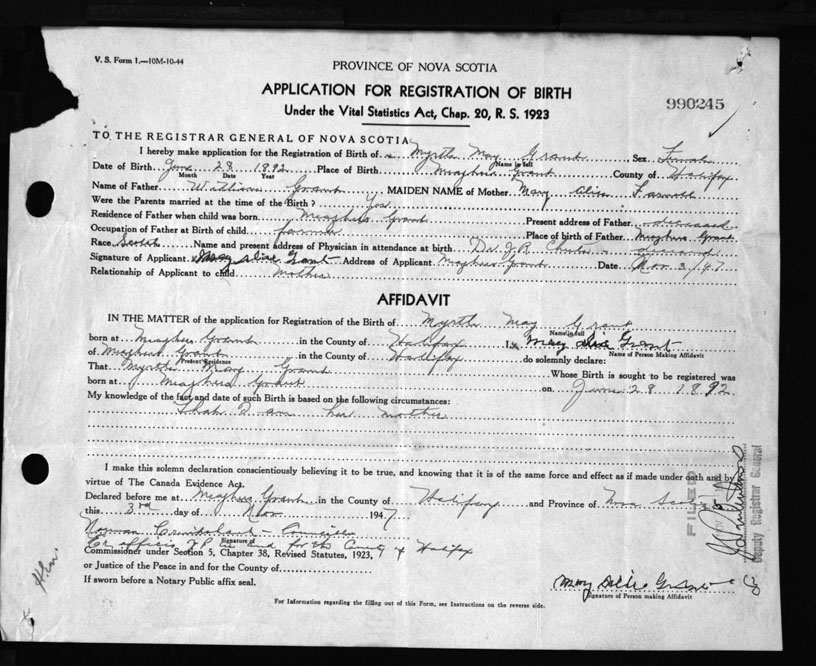 V. S. Form 1.—10M-10-44
PROVINCE OF NOVA SCOTIA
APPLICATION FOR REGISTRATION OF BIRTH
990245
Under the Vital Statistics Act, Chap. 20, R. S. 1923
TO THE REGISTRAR GENERAL OF NOVA SCOTIA
I hereby make application for the Registration of Birth of Myrtle May Grant Sex Female
Name in full
Date of Birth June 28 1892 Place of Birth Meaghers Grant County of Halifax
Month Date Year
Name of Father William Grant MAIDEN NAME of Mother Mary Alice
Were the Parents married at the time of the Birth? Yes
Residence of Father when child was born Meaghers Grant Present address of Father deceased
Occupation of Father at Birth of child farmer Place of birth of Father Meaghers Grant
Race Scotch Name and present address of Physician in attendance at birth Dr. J. R. deceased
Signature of Applicant Mary Alice Grant Address of Applicant Meaghers Grant Date Nov 3/47
Relationship of Applicant to child mother
AFFIDAVIT
IN THE MATTER of the application for Registration of the Birth of Myrtle May Grant
Name in full
born at Meaghers Grant in the County of Halifax I, Mary Alice Grant
Name of Person Making Affidavit
of Meaghers Grant in the County of Halifax do solemnly declare:
Present Residence
That Myrtle May Grant Whose Birth is sought to be registered was
born at Meaghers Grant on June 28 1892
My knowledge of the fact and date of such Birth is based on the following circumstances:
That I am her mother
I make this solemn declaration conscientiously believing it to be true, and knowing that it is of the same force and effect as if made under oath and by
virtue of The Canada Evidence Act.
Declared before me at Meaghers Grant in the County of Halifax and Province of Nova Scotia
this 3rd day of Nov 1947
Norman
Signature of
Ex officio J P in and for the County of Halifax
Commissioner under Section 5, Chapter 38, Revised Statutes, 1923,
or Justice of the Peace in and for the County of
If sworn before a Notary Public affix seal.
Mary Alice Grant
Signature of Person making Affidavit
For Information regarding the filling out of this Form, see Instructions on the reverse side.
FILED
Deputy Registrar General